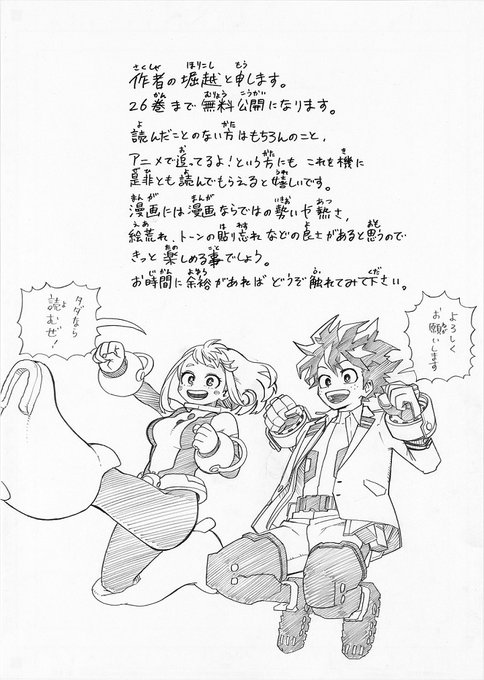 作者の堀越と申します。
26巻まで無料公開になります。
読んだことのない方はもちろんのこと、
アニメで追ってるよ！という方にも これを機に
是非とも読んでもらえると嬉しいです。
漫画には漫画ならではの勢いや熱さ、
絵荒れ、トーンの貼り忘れなどの良さがあると思うので
きっと楽しめる事でしょう。
お時間に余裕があれば どうぞ触れてみて下さい。
よろしく
お願いします
タダなら
読むぜ！